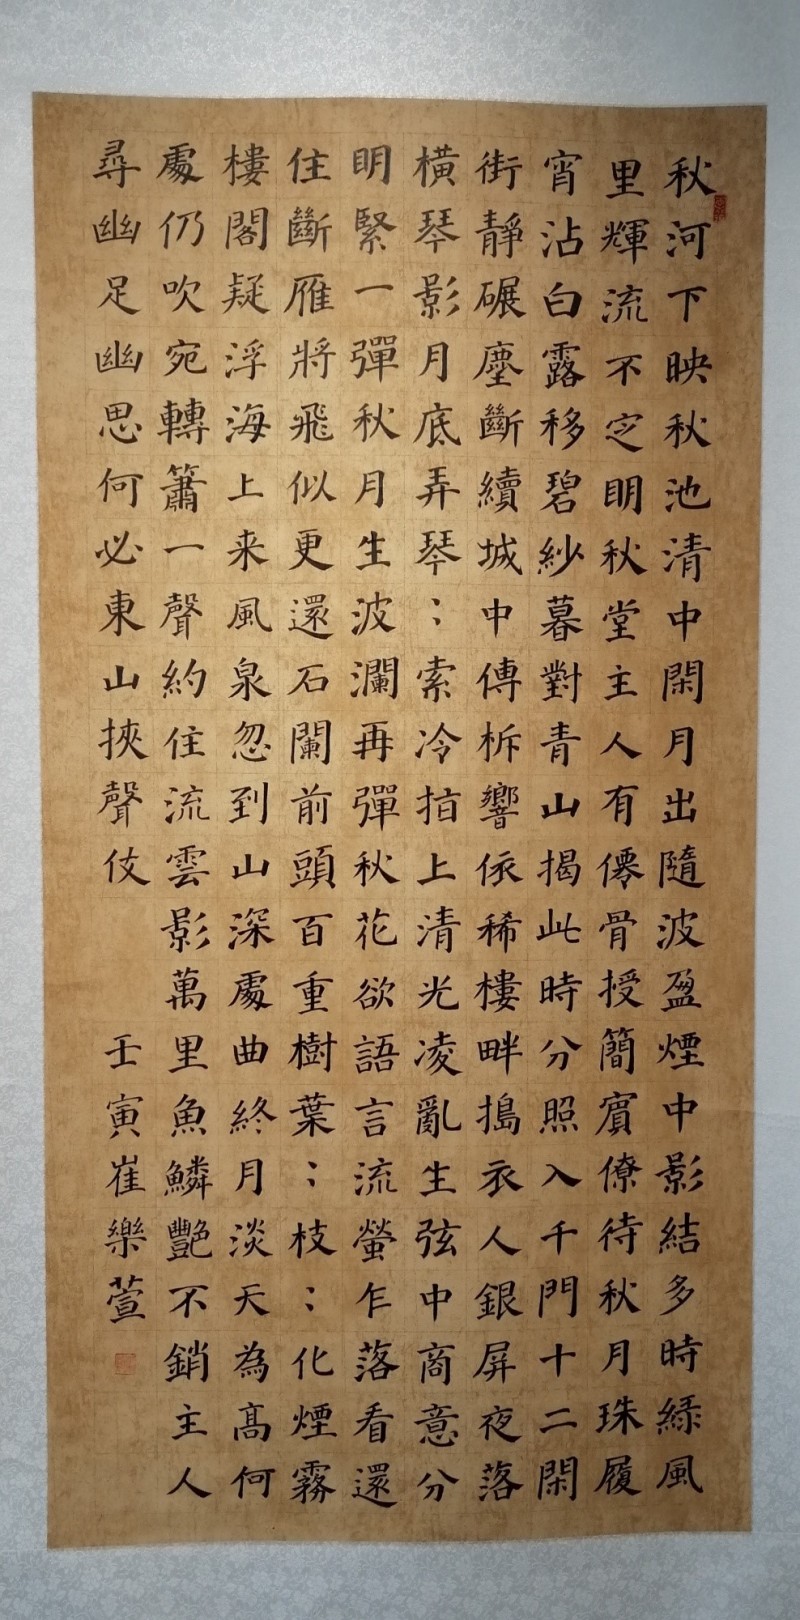 秋河下映秋池清中閑月出隨波盈煙中影結多時綠風
里輝流不定明秋堂主人有僊骨授簡賓僚待秋月珠履
宵沾白露移碧紗暮對青山揭此時分照入千門十二閑
街靜碾塵斷續城中傳柝響依稀樓畔搗衣人銀屏夜落
橫琴影月底弄琴：索冷指上清光凌亂生弦中商意分
明緊一彈秋月生波瀾再彈秋花欲語言流螢乍落看還
住斷雁將飛似更還石闌前頭百重樹葉：枝：化煙霧
樓閣疑浮海上来風泉忽到山深處曲終月淡天為高何
處仍吹宛轉簫一聲約住流雲影萬里魚鱗艷不銷主人
尋幽足幽思何必東山挾聲伎
壬寅崔樂萱